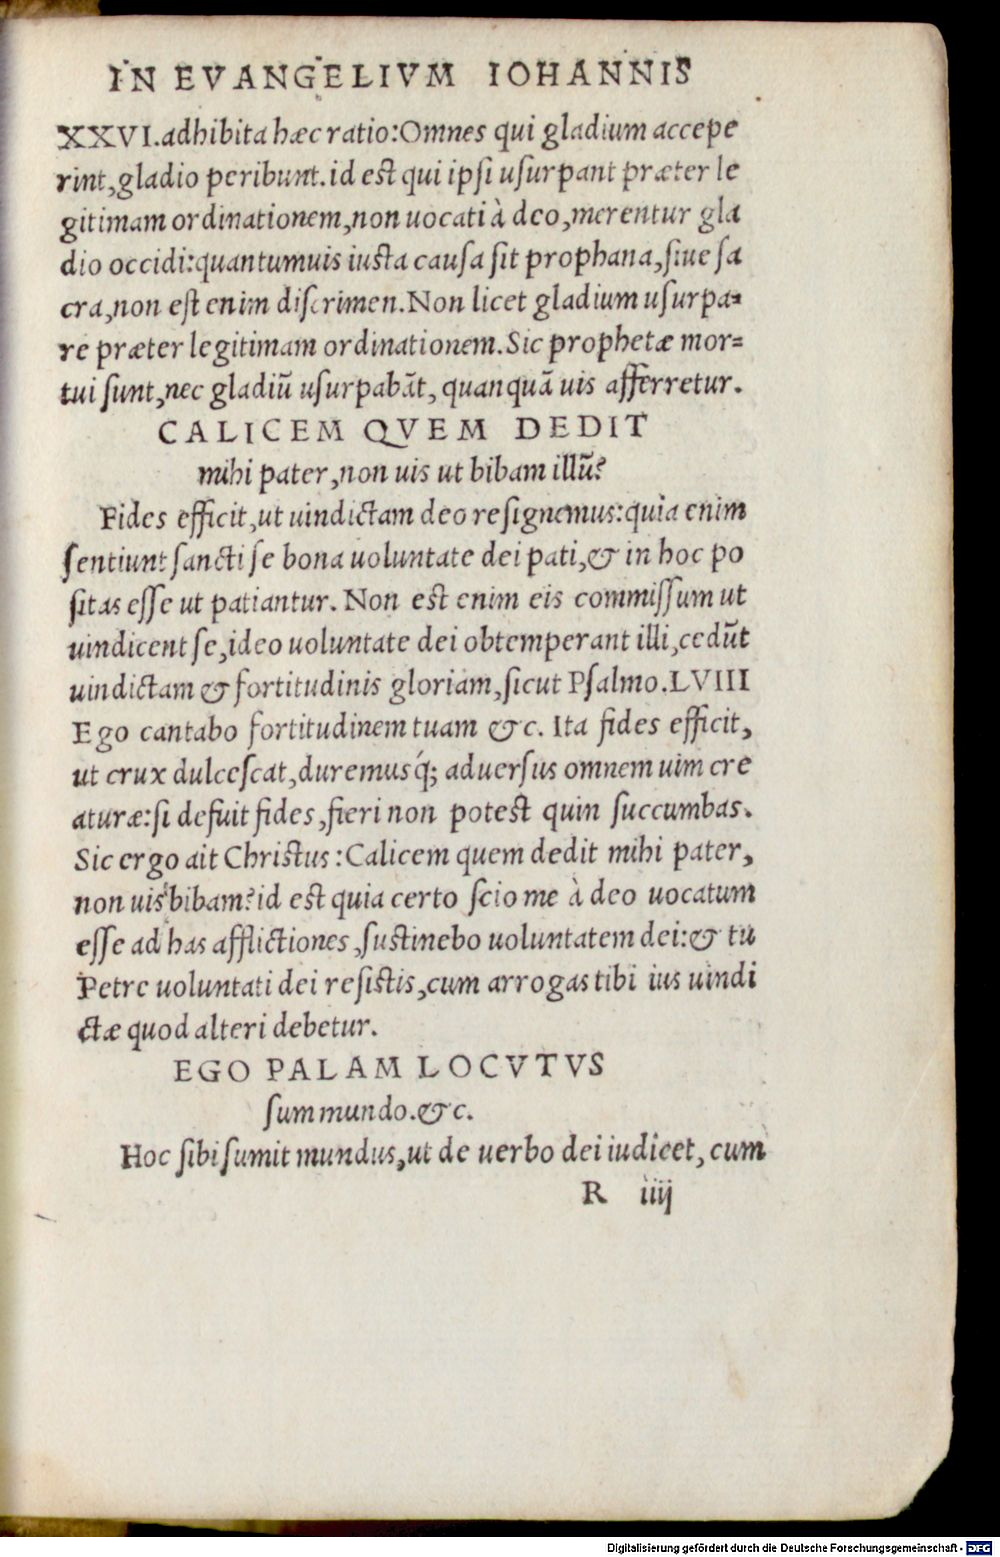 IN EVANGELIVM IOHANNIS
XXVI. adhibita hæc ratio: Omnes qui gladium accepe
rint, gladio peribunt. id est qui ipsi uſurpant præter le
gitimam ordinationem, non uocati à deo, merentur gla
dio occidi: quantumuis iusta cauſa ſit prophana, ſiue ſa
cra, non eſt enim diſcrimen. Non licet gladium uſurpa=
re præter legitimam ordinationem. Sic prophetæ mor=
tui ſunt, nec gladiũ uſurpabãt, quanquã uis afferretur.
CALICEM QVEM DEDIT
mihi pater, non uis ut bibam illũ?
Fides efficit, ut uindictam deo reſignemus: quia enim
ſentiunt ſancti ſe bona uoluntate dei pati, & in hoc po
ſitas eſſe ut patiantur. Non est enim eis commiſſum ut
uindicent ſe, ideo uoluntate dei obtemperant illi, cedũt
uindictam & fortitudinis gloriam, ſicut Pſalmo. LVIII
Ego cantabo fortitudinem tuam &c. Ita fides efficit,
ut crux dulceſcat, duremusq́; aduerſus omnem uim cre
aturæ: ſi defuit fides, fieri non potest quin ſuccumbas.
Sic ergo ait Christus: Calicem quem dedit mihi pater,
non uis bibam? id est quia certo ſcio me à deo uocatum
eſſe ad has afflictiones, ſustinebo uoluntatem dei: & tu
Petre uoluntati dei reſistis, cum arrogas tibi ius uindi
ctæ quod alteri debetur.
EGO PALAM LOCVTVS
ſum mundo. &c.
Hoc ſibi ſumit mundus, ut de uerbo dei iudicet, cum
R iiij
Digitalisierung gefördert durch die Deutsche Forschungsgemeinschaft - DFG